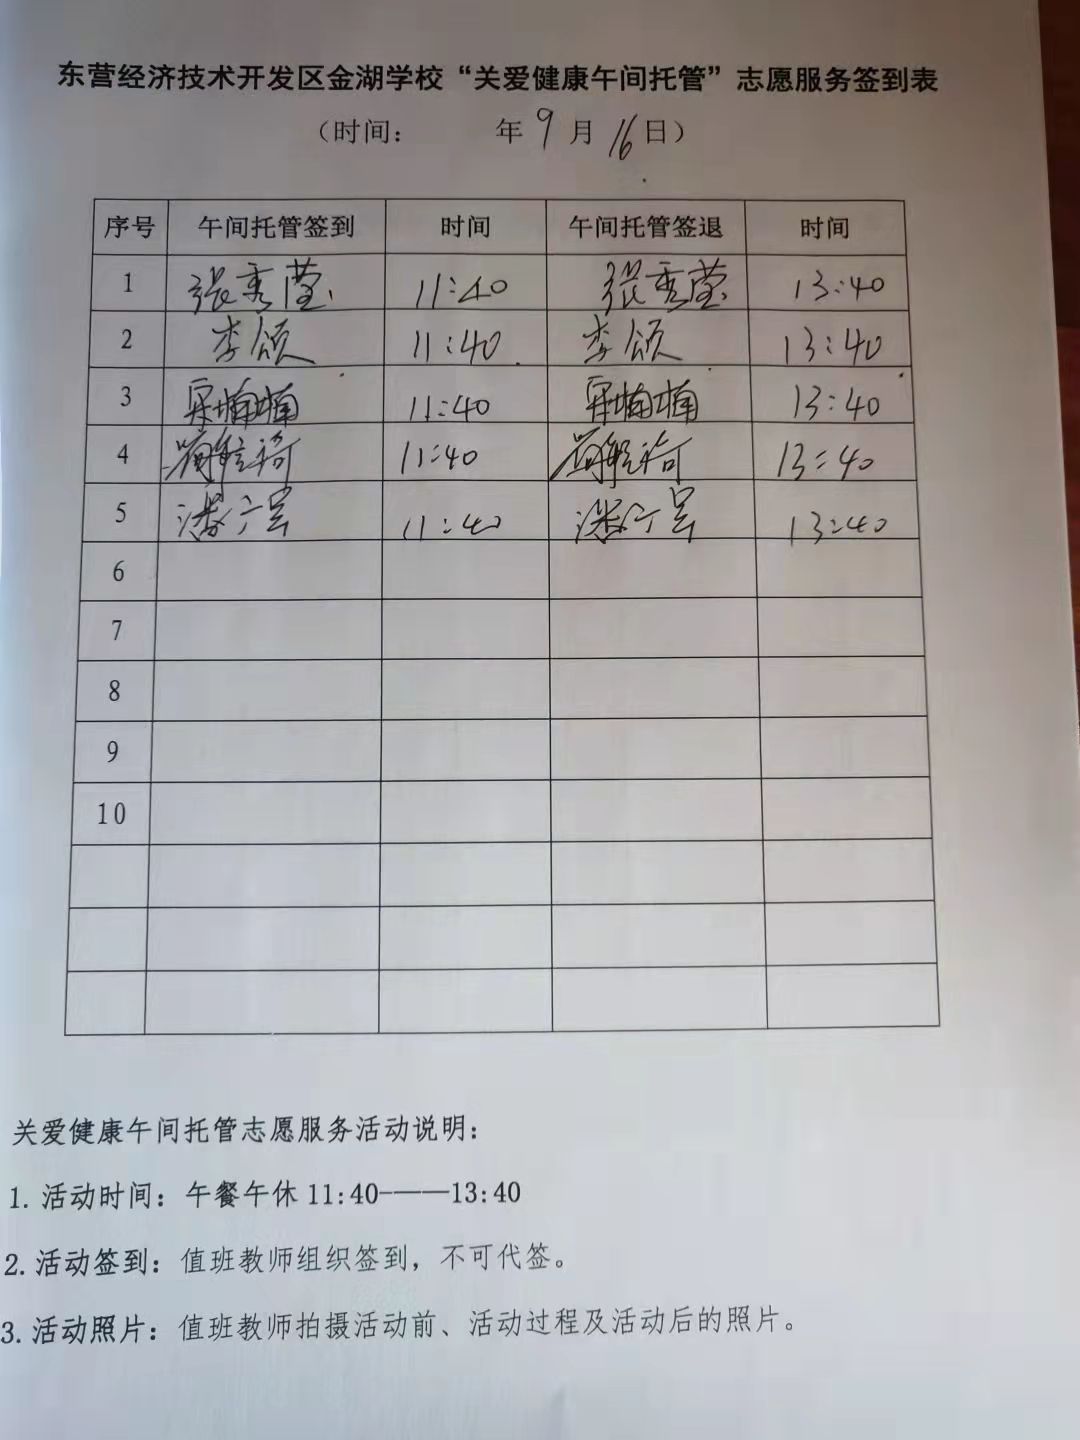 东营经济技术开发区金湖学校“关爱健康午间托管”志愿服务签到表
（时间： 年 9 月 16 日）
序号 午间托管签到 时间 午间托管签退 时间
1 张秀莹 11:40 张秀莹 13:40
2 李颂 11:40 李颂 13:40
3 11:40 13:40
4 11:40 13:40
5 11:40 13:40
6
7
8
9
10
关爱健康午间托管志愿服务活动说明：
1.活动时间：午餐午休 11:40-——13:40
2.活动签到：值班教师组织签到，不可代签。
3.活动照片：值班教师拍摄活动前、活动过程及活动后的照片。